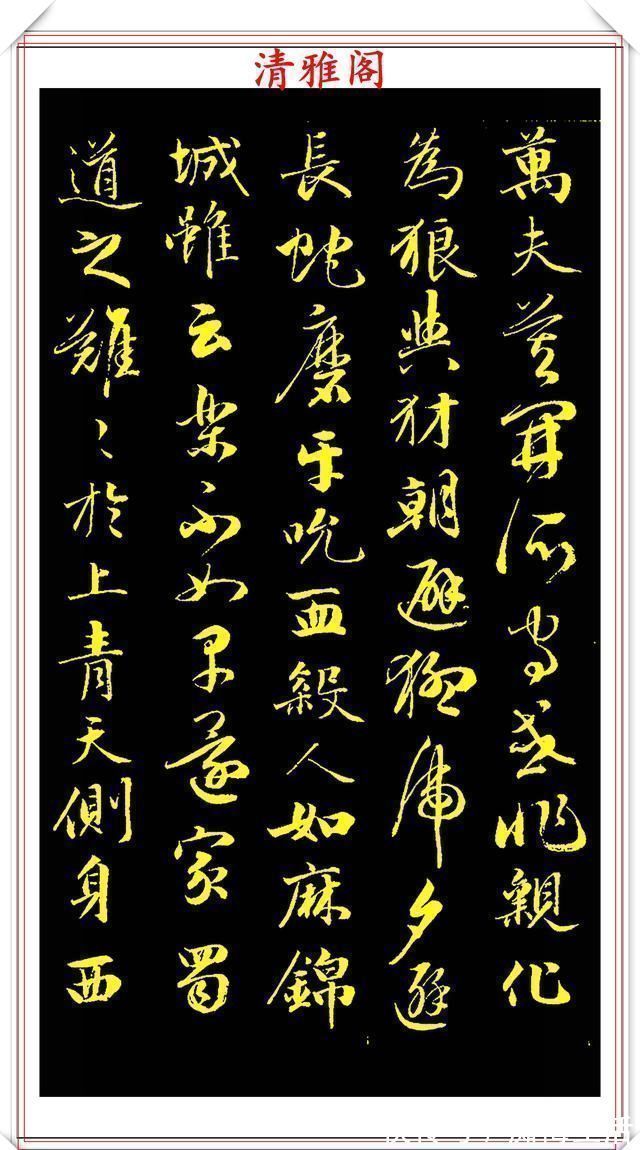 清雅阁
萬夫莫開所守或非親化
為狼與豺朝避猛虎夕避
長蛇磨牙吮血殺人如麻錦
城雖云樂不如早還家蜀
道之難〻於上青天側身西